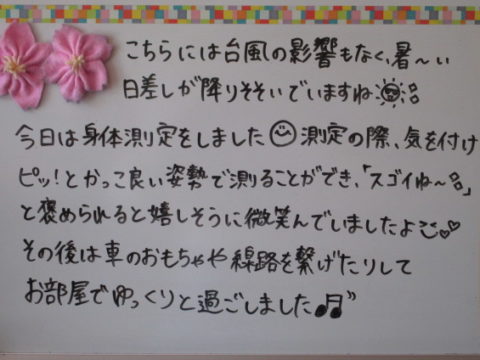 こちらには台風の影響もなく、暑〜い
日差しが降りそそいでいますね
今日は身体測定をしました 測定の際、気を付け
ピッ!とかっこ良い姿勢で測ることができ、「スゴイね〜」
と褒められると嬉しそうに微笑んでいましたよ
その後は車のおもちゃや線路を繋げたりして
お部屋でゆっくりと過ごしました♫"